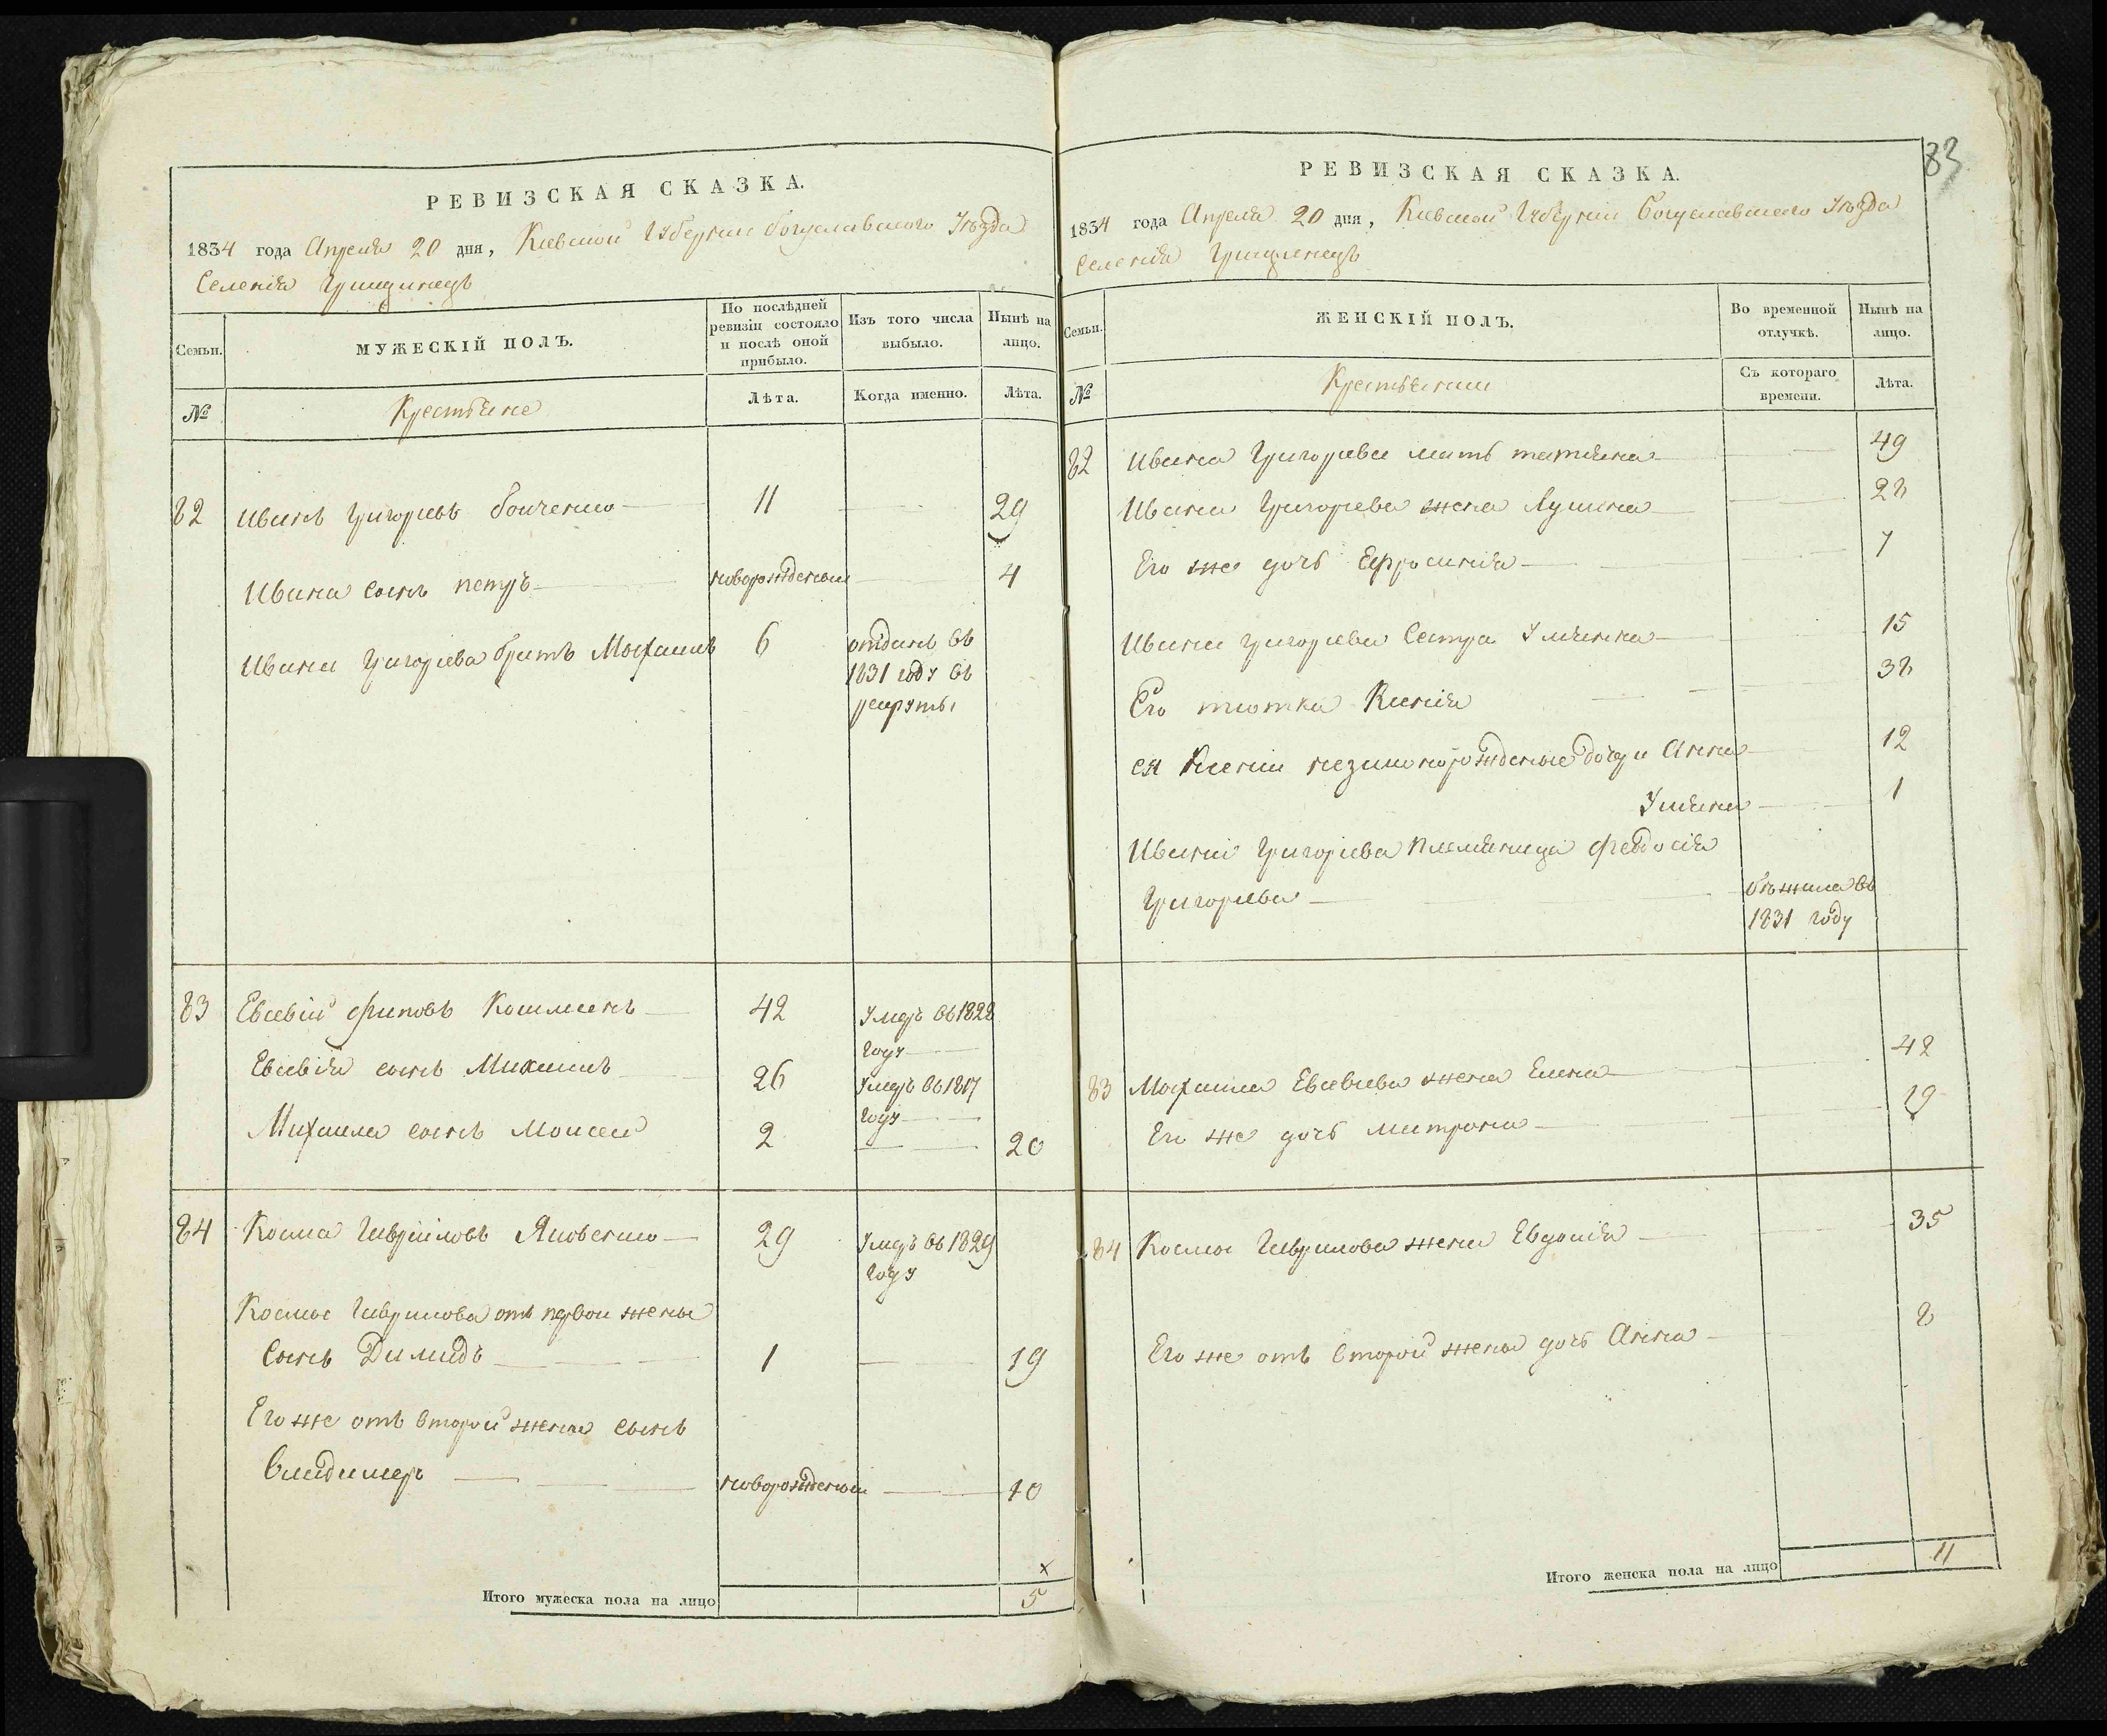 РЕВИЗСКАЯ СКАЗКА.
1834 года Апреля 20 дня, Киевской Губернии Богуславского Уѣзда
Селенія Грищинецъ
Семьи.
МУЖЕСКІЙ ПОЛЪ.
По послѣдней ревизіи состояло и послѣ оной прибыло.
Изъ того числа выбыло.
Нынѣ на лицо.
№
Крестьяне
Лѣта.
Когда именно.
Лѣта.
82 Иванъ Григорьевъ 11 29
Ивана сынъ петръ новорожденный 4
Ивана Григорьева братъ Михаилъ 6 отданъ въ
1831 году въ
рекруты
83 Евсевій Филповъ 42 Умеръ въ 1828
году
Евсевія сынъ Михаилъ 26 Умеръ въ 1817
году
Михаила сынъ Моисей 2 20
84 Косма Гавриловъ Яковенко 29 Умеръ въ 1829
году
Космы Гаврилова отъ первой жены
сынъ Димидъ 1 19
Его же отъ второй жены сынъ
Владимеръ новорожденный 10
х
Итого мужеска пола на лицо 5
83
РЕВИЗСКАЯ СКАЗКА.
1834 года Апреля 20 дня, Киевской Губерніи Богуславского Уѣзда
Селенія Грищинецъ
Семьи.
ЖЕНСКІЙ ПОЛЪ.
Во временной отлучкѣ.
Нынѣ на лицо.
№
Крестьянки
Съ котораго времени.
Лѣта.
82 Ивана Григорьева мать татіяна 49
Ивана Григорьева жена Лукія 28
Его же дочь Ефросинія 7
Ивана Григорьева сестра Уліянна 15
Его тіотка Ксенія 38
ея Ксеніи незаконорожденые дочери Анна 12
Уліяна 1
Ивана Григорьева племяница Феодосія
Григорьева бѣжала въ
1831 году
83 Михаила Евсевіева жена Елена 42
Его же дочь Матрона 19
84 Космы Гаврилова жена Евдокія 35
Его же отъ второй жены дочь Анна 8
Итого женска пола на лицо 11